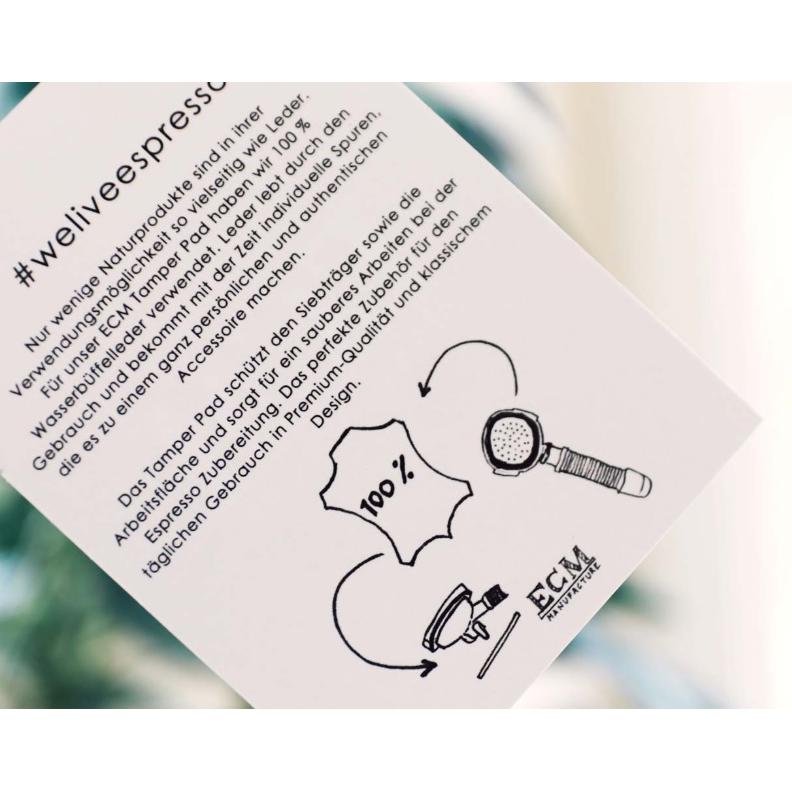 #weliveespresso
Nur wenige Naturprodukte sind in ihrer
Verwendungsmöglichkeit so vielseitig wie Leder.
Für unser ECM Tamper Pad haben wir 100 %
Wasserbüffelleder verwendet. Leder lebt durch den
Gebrauch und bekommt mit der Zeit individuelle Spuren,
die es zu einem ganz persönlichen und authentischen
Accessoire machen.
Das Tamper Pad schützt den Siebträger sowie die
Arbeitsfläche und sorgt für ein sauberes Arbeiten bei der
Espresso Zubereitung. Das perfekte Zubehör für den
täglichen Gebrauch in Premium-Qualität und klassischem
Design.
100%
ECM
MANUFACTURE